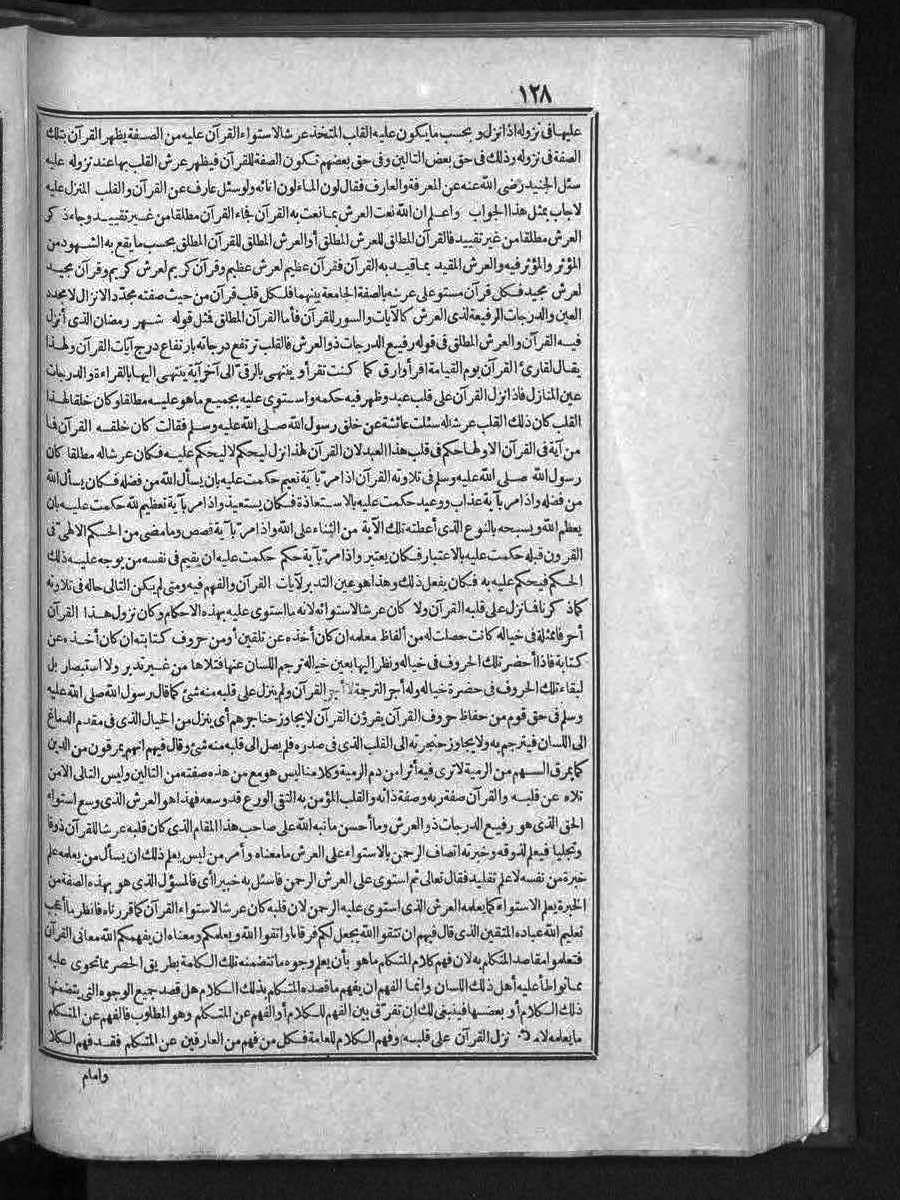 ١٢٨
عليها فى نزوله اذا نزل و بحسب ما يكون عليه القلب المتخذ عرشا لاستواء القرآن عليه من الصفة يظهر القرآن بتلك
الصفة فى نزوله وذلك فى حق بعض التالين وفى حق بعضهم تكون الصفة للقرآن فيظهر عرش القلب بها عند نزوله عليه
سئل الجنيد رضى الله عنه عن المعرفة والعارف فقال لون الماء لون انائه ولو سئل عارف عن القرآن والقلب المنزل عليه
لاجاب بمثل هذا الجواب واعلم ان الله نعت العرش بما نعت به القرآن فجاء القرآن مطلقا من غير تقييد وجاء ذكر
العرش مطلقا من غير تقييد فالقرآن المطلق للعرش المطلق أو العرش المطلق للقرآن المطلق بحسب ما يقع به الشهود من
المؤثر والمؤثر فيه والعرش المقيد بما قيد به القرآن فقرآن عظيم لعرش عظيم وقرآن كريم لعرش كريم وقرآن مجيد
لعرش مجيد فكل قرآن مستو على عرشه بالصفة الجامعة بينهما فلكل قلب قرآن من حيث صفته مجدد الانزال لا مجدد
العين والدرجات الرفيعة لذى العرش كالآيات والسور للقرآن فأما القرآن المطلق فمثل قوله شهر رمضان الذى أنزل
فيه القرآن والعرش المطلق فى قوله رفيع الدرجات ذو العرش فالقلب ترتفع درجاته بارتفاع درج آيات القرآن ولهذا
يقال لقارئ القرآن يوم القيامة اقرأ وارق كما كنت تقرأ و ينتهى بالرقى الى آخر آية ينتهى اليها بالقراءة والدرجات
عين المنازل فاذا نزل القرآن على قلب عبد وظهر فيه حكمه واستوى عليه بجميع ما هو عليه مطلقا وكان خلقا لهذا
القلب كان ذلك القلب عرشا له سئلت عائشة عن خلق رسول الله صلى الله عليه وسلم فقالت كان خلقه القرآن فما
من آية فى القرآن الا ولها حكم فى قلب هذا العبد لان القرآن لهذا نزل ليحكم لا ليحكم عليه فكان عرشا له مطلقا كان
رسول الله صلى الله عليه وسلم فى تلاوته القرآن اذا مر بآية نعيم حكمت عليه بان يسأل الله من فضله فكان يسأل الله
من فضله واذا مر بآية عذاب ووعيد حكمت عليه بالاستعاذة فكان يستعيذ واذا مر بآية تعظيم لله حكمت عليه بان
يعظم الله ويسبحه بالنوع الذى أعطته تلك الآية من الثناء على الله واذا مر بآية قصص وما مضى من الحكم الالهى فى
القرون قبله حكمت عليه بالاعتبار فكان يعتبر واذا مر بآية حكم حكمت عليه ان يقيم فى نفسه من يوجه عليه ذلك
الحكم فيحكم عليه به فكان يفعل ذلك وهذا هو عين التدبر لآيات القرآن والفهم فيه ومتى لم يكن التالى حاله فى تلاوته
كما ذكرنا فما نزل على قلبه القرآن ولا كان عرشا لاستوائه لانه ما استوى عليه بهذه الاحكام وكان نزول هذا القرآن
أحرفا ممثلة فى خياله كانت حصلت له من ألفاظ معلمه ان كان أخذه عن تلقين أو من حروف كتابته ان كان أخذه عن
كتابة فاذا أحضر تلك الحروف فى خياله ونظر اليها بعين خياله ترجم اللسان عنها فتلاها من غير تدبر ولا استبصار بل
لبقاء تلك الحروف فى حضرة خياله وله أجر الترجمة لا أجر القرآن ولم ينزل على قلبه منه شئ كما قال رسول الله صلى الله عليه
وسلم فى حق قوم من حفاظ حروف القرآن يقرؤن القرآن لا يجاوز حناجرهم أى ينزل من الخيال الذى فى مقدم الدماغ
الى اللسان فيترجم به ولا يجاوز حنجرته الى القلب الذى فى صدره فلم يصل الى قلبه منه شئ وقال فيهم انهم يمرقون من الدين
كما يمرق السهم من الرمية لا ترى فيه أثرا من دم الرمية وكلامنا ليس هو مع من هذه صفته من التالين وليس التالى الا من
تلاه عن قلبه والقرآن صفة ربه وصفة ذاته والقلب المؤمن به التقى الورع قد وسعه فهذا هو العرش الذى وسع استواء
الحق الذى هو رفيع الدرجات ذو العرش وما أحسن ما نبه الله على صاحب هذا المقام الذى كان قلبه عرشا للقرآن ذوقا
وتجليا فيعلم لذوقه وخبرته اتصاف الرحمن بالاستواء على العرش ما معناه وأمر من ليس يعلم ذلك ان يسأل من يعلمه علم
خبرة من نفسه لا علم تقليد فقال تعالى ثم استوى على العرش الرحمن فاسئل به خبيرا أى فالمسؤل الذى هو بهذه الصفة من
الخبرة يعلم الاستواء كما يعلمه العرش الذى استوى عليه الرحمن لان قلبه كان عرشا لاستواء القرآن كما قررناه فانظر ما أعجب
تعليم الله عباده المتقين الذى قال فيهم ان تتقوا الله يجعل لكم فرقانا واتقوا الله ويعلمكم ومعناه ان يفهمكم الله معانى القرآن
فتعلموا مقاصد المتكلم به لان فهم كلام المتكلم ما هو بأن يعلم وجوه ما تتضمنه تلك الكلمة بطريق الحصر مما تحوى عليه
مما تواطأ عليه أهل ذلك اللسان وانما الفهم ان يفهم ما قصده المتكلم بذلك الكلام هل قصد جميع الوجوه التى يتضمنها
ذلك الكلام أو بعضها فينبغى لك ان تفرق بين الفهم للكلام أو الفهم عن المتكلم وهو المطلوب فالفهم عن المتكلم
ما يعلمه الا من نزل القرآن على قلبه وفهم الكلام للعامة فكل من فهم من العارفين عن المتكلم فقد فهم الكلا
وامام